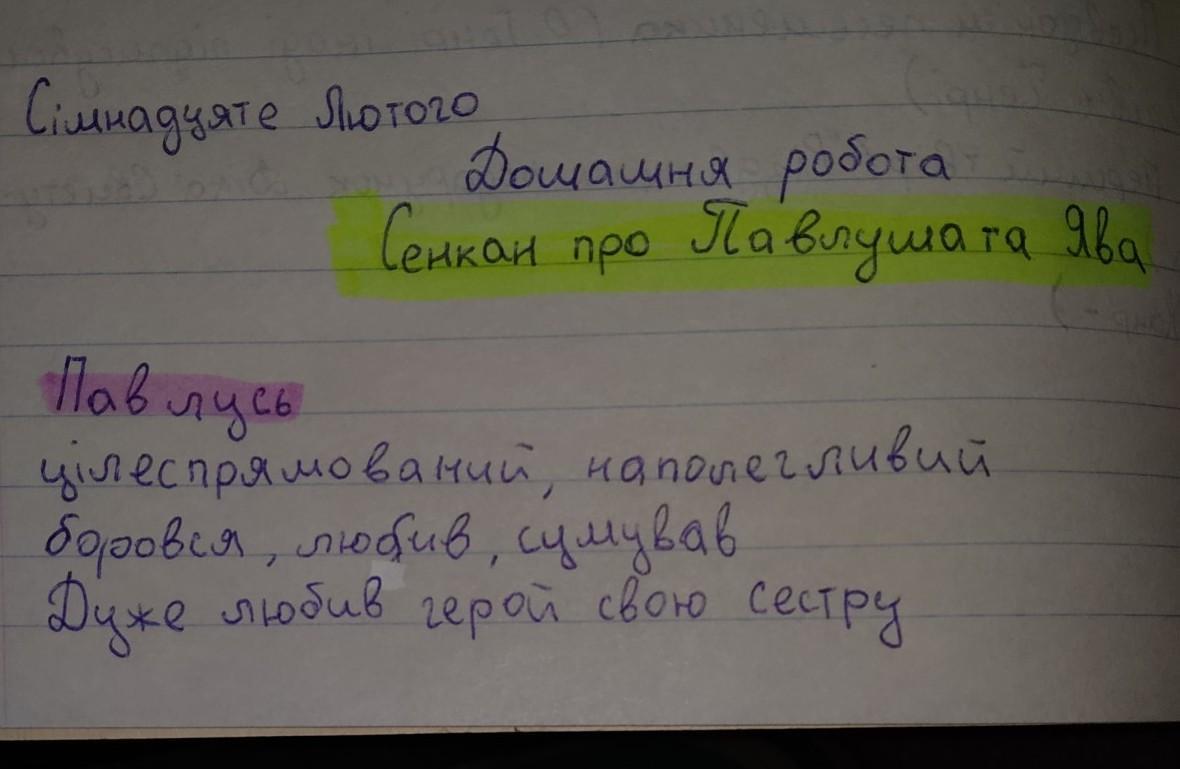 Сімнадцяте Лютого
Домашня робота
Сенкан про Павлуша та Ява
Павлусь
цілеспрямований, наполегливий
боровся, любив, сумував
Дуже любив герой свою сестру